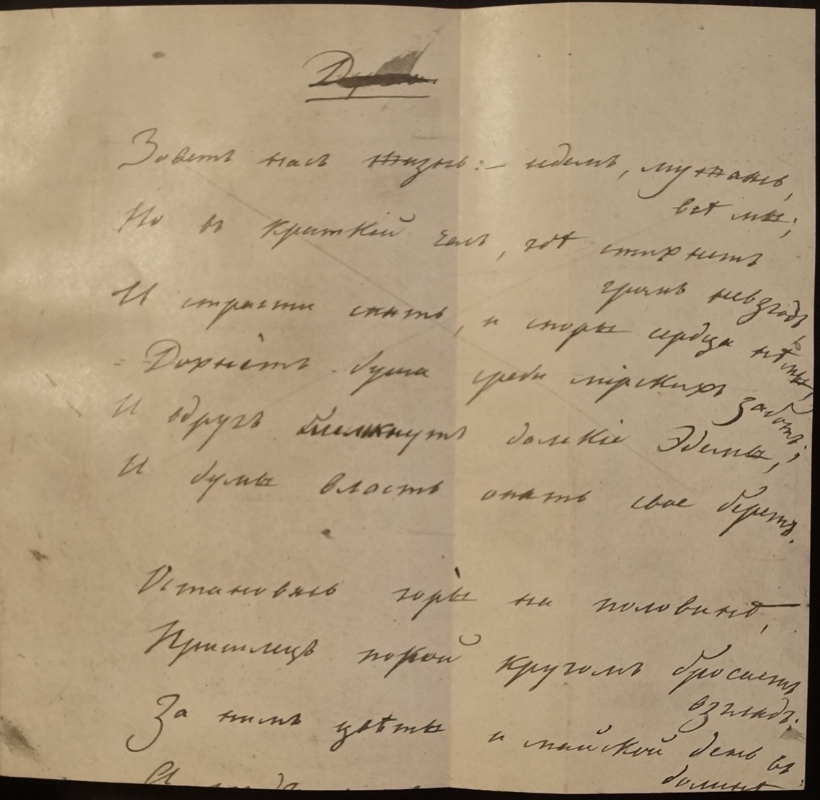 Зоветъ насъ жизнь:– идемъ, мужаясь,
всѣ мы;
Но въ краткій часъ, гдѣ стихнетъ
громъ невзгодъ,
И страсти спятъ, и споры сердца нѣмы,
– Дохнетъ душа среди мірскихъ заботъ,
И вдругъ блеснутъ далекіе Эдемы,
И думы власть опять свое беретъ.
Остановясь горы на половинѣ,
Пришлецъ порой кругомъ бросаетъ
взглядъ:
За нимъ цвѣты и майскій день въ
долинѣ